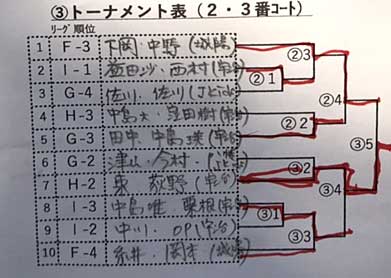 ③トーナメント表(2・3番コート)
リーグ 順位
1 F-3 下岡・中野(城陽)
2 I-1 西村(宇治)
3 G-4 佐川・佐川(Jkids)
4 H-3 中島大・窪田樹(宇治)
5 G-3 田中・中島瑛(宇治)
6 G-2 津山・今村・
7 H-2 東 荻野(宇治)
8 I-3 中島唯 栗根(宇治)
9 I-2 中川・OP(宇治)
10 F-4 糸井・岡本(城陽)
②3
②1
②4
②2
③5
③2
③4
③1
③3